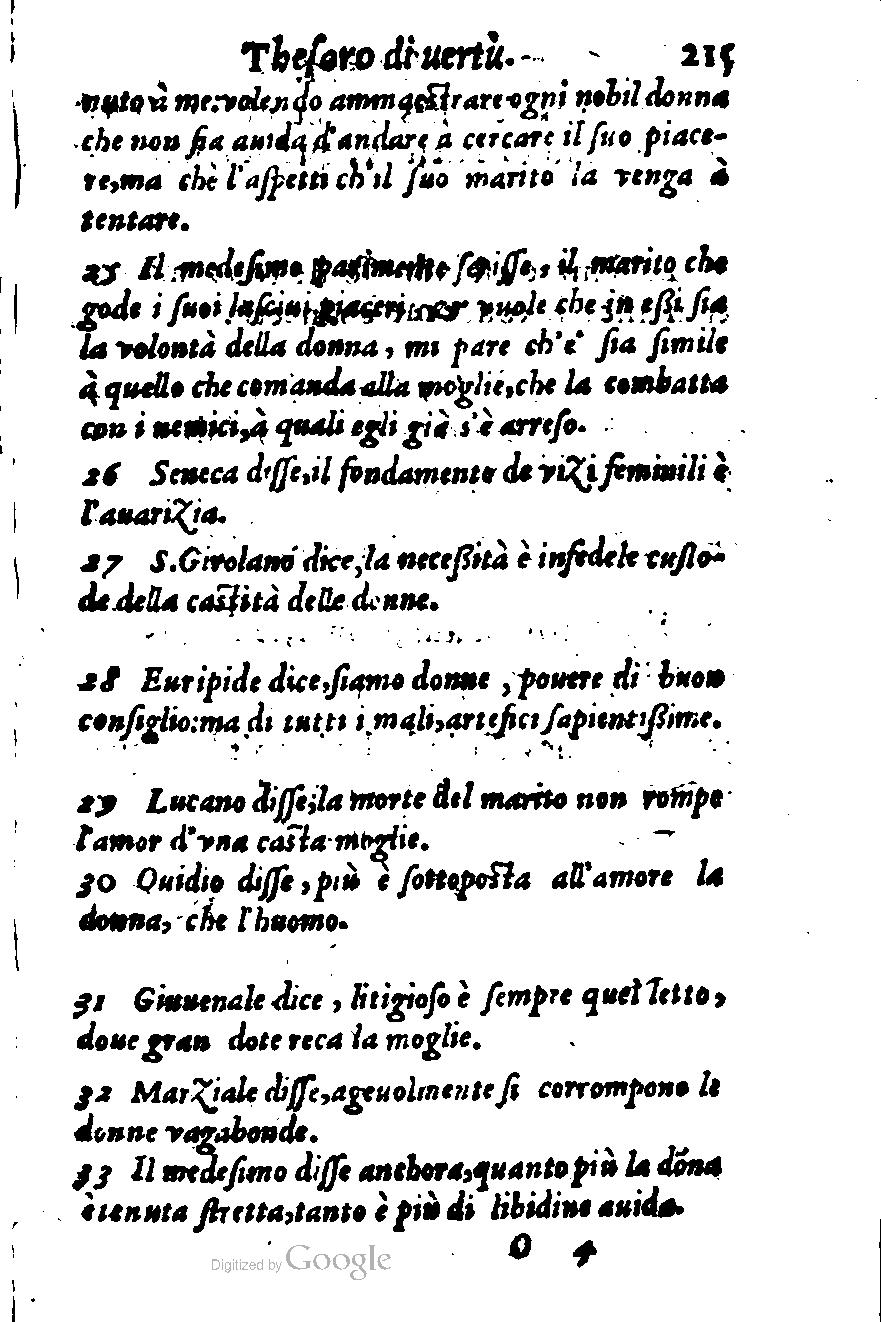 Theſoro di uertù. 215
nuto à me: volendo ammaeſtrare ogni nobil donna
che non ſia auida d'andare à cercare il ſuo piace-
re, ma chè l'aſpetti ch'il ſuo marito la venga à
tentare.
25 Il medeſimo parimente ſcriſſe, il marito che
gode i ſuoi laſciui piaceri, vuole che in eßi ſia
la volontà della donna, mi pare ch'e' ſia ſimile
à quello che comanda alla moglie, che la combatta
con i nemici, à quali egli già s'è arreſo.
26 Seneca diſſe, il fondamento de vizi feminili è
l'auarizia.
27 S. Girolamo dice, la neceßità è infedele cuſto-
de della caſtità delle donne.
28 Euripide dice, ſiamo donne, pouere di buon
conſiglio: ma di tutti i mali, artefici ſapientißime.
29 Lucano diſſe, la morte del marito non rompe
l'amor d'vna caſta moglie.
30 Ouidio diſſe, più è ſottopoſta all'amore la
donna, che l'huomo.
31 Giuuenale dice, litigioſo è ſempre quel letto,
doue gran dote reca la moglie.
32 Marziale diſſe, ageuolmente ſi corrompono le
donne vagabonde.
33 Il medeſimo diſſe anchora, quanto più la dōna
è tenuta ſtretta, tanto è più di libidine auida.
O 4
Digitized by Google